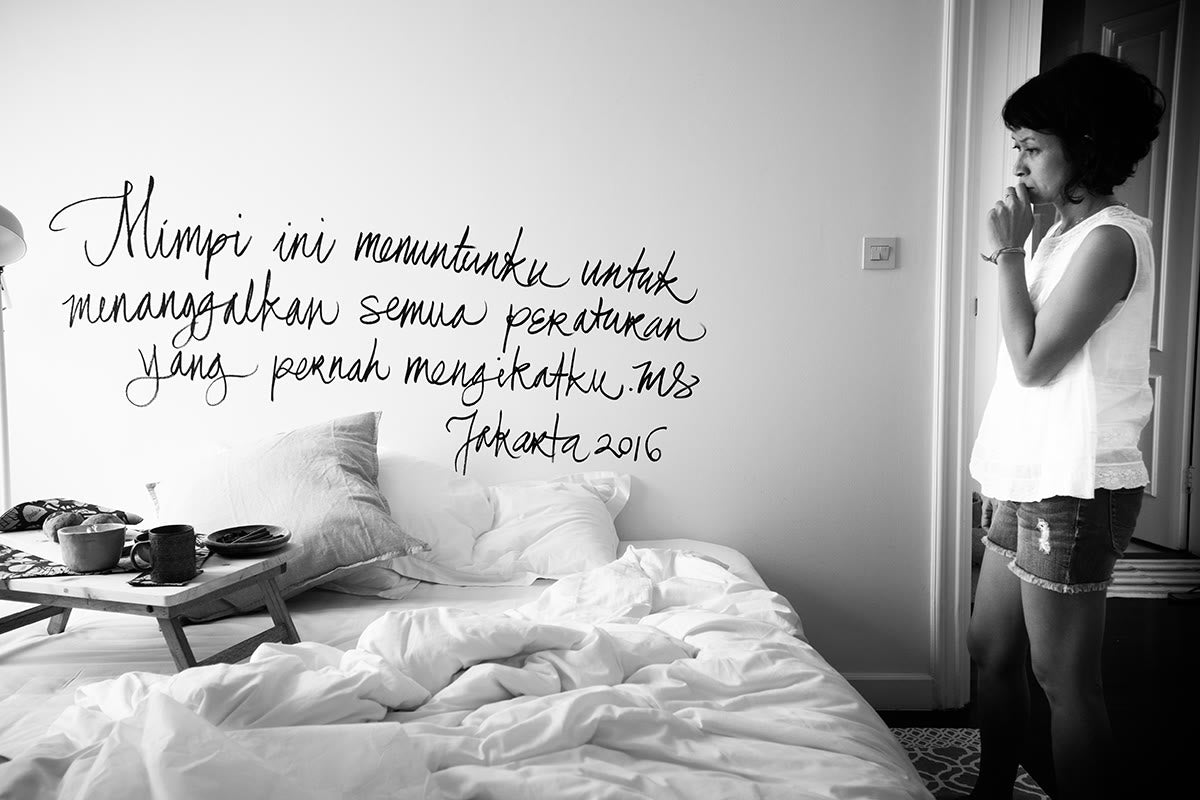 Mimpi ini menuntunku untuk
menanggalkan semua peraturan
yang pernah mengikatku. MS
Jakarta 2016